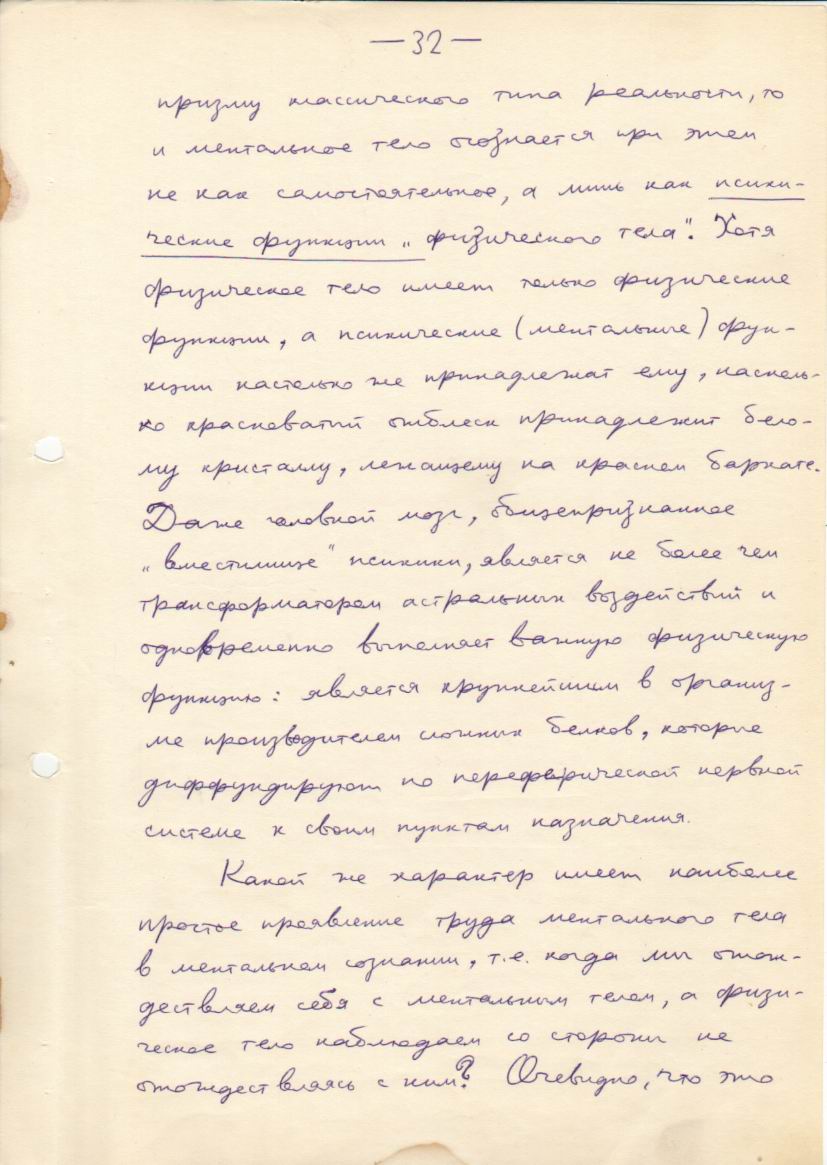 — 32 —
призму классического типа реальности, то
и ментальное тело осознается при этом
не как самостоятельное, а лишь как психи-
ческие функции „физического тела". Хотя
физическое тело имеет только физические
функции, а психические (ментальные) функ-
кции настолько же принадлежат ему, насколь-
ко красноватый отблеск принадлежит бело-
му кристаллу, лежащему на красном бархате.
Даже головной мозг, общепризнанное
„вместилище" психики, является не более чем
трансформатором астральных воздействий и
одновременно выполняет важную физическую
функцию: является крупнейшим в организ-
ме производителем сложных белков, которые
диффундируют по переферической нервной
системе к своим пунктам назначения.
Какой же характер имеет наиболее
простое проявление труда ментального тела
в ментальном сознании, т.е. когда мы отож-
дествляем себя с ментальным телом, а физи-
ческое тело наблюдаем со стороны не
отождествляясь с ним? Очевидно, что это